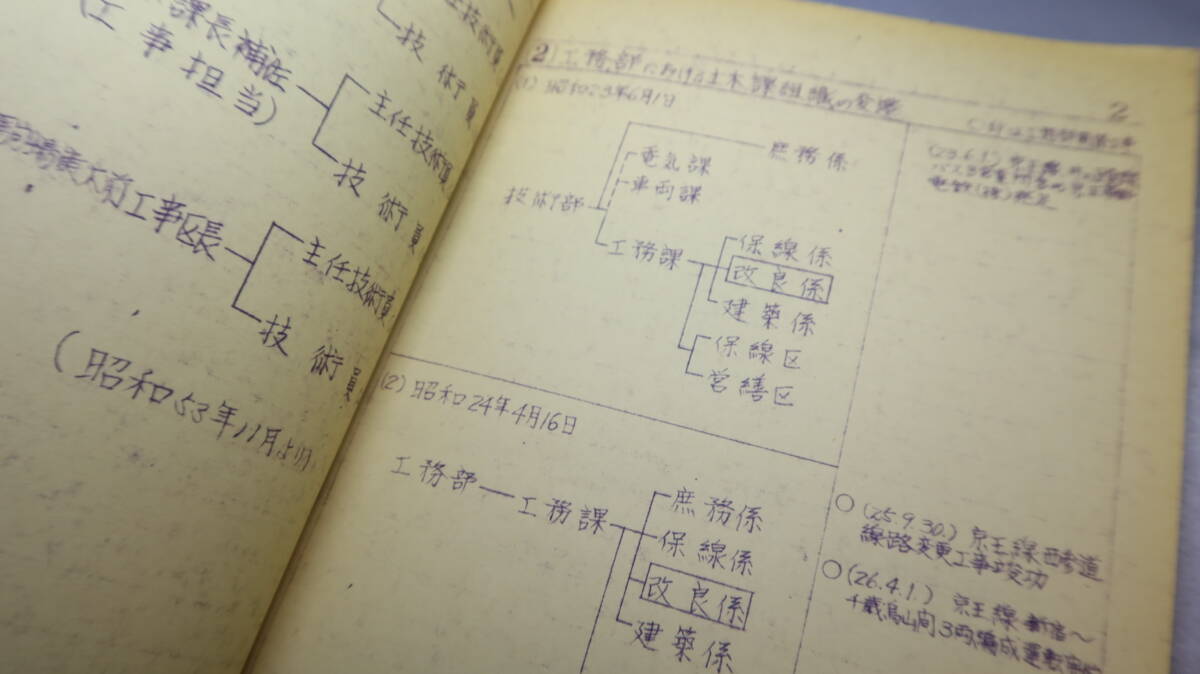 課長補佐
(工事担当)
技術員
主任技術員
技術員
大前工事区長
主任技術員
技術員
(昭和53年11月より)
2
2 工務部における土木課組織の変遷
(1) 昭和23年6月1日
庶務係
電気課
車両課
技術部
工務課
保線係
改良係
建築係
保線区
営繕区
(23.6.1)
(2) 昭和24年4月16日
工務部
工務課
庶務係
保線係
改良係
建築係
○(25.9.30.) 京王線西参道
線路変更工事竣功
○(26.4.1) 京王線 新宿~
千歳烏山間3両編成運転